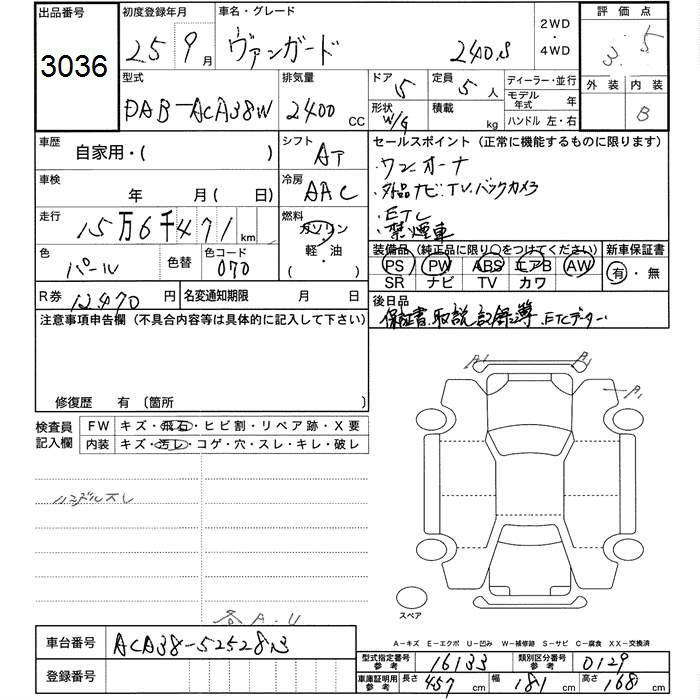 出品番号
3036
初度登録年月
25 9月
車名・グレード
ヴァンガード 240S
2WD
・
4WD
評価点
3.5
外装 内装
B
型式
DAB-ACA38W
排気量
2400 CC
ドア 5
定員 5人
形状 W/G
積載 kg
ディーラー・並行
モデル年式 年
ハンドル 左・右
車歴
自家用・( )
シフト
AT
セールスポイント (正常に機能するものに限ります)
・ワンオーナ
・外品ナビ.TV.バックカメラ
・ETC
・禁煙車
車検
年 月( 日)
冷房
AAC
走行
15万6千471 km
燃料
ガソリン
・
軽油
( )
色
パール
色替
色コード
070
装備品 (純正品に限り○をつけてください)
PS PW ABS エアB AW
SR ナビ TV カワ
新車保証書
有・無
R券 12470円
名変通知期限 月 日
後日品
保証書.取説.記録簿.ETCデーター.
注意事項申告欄 (不具合内容等は具体的に記入して下さい)
修復歴 有 〔箇所
検査員
記入欄
FW キズ・飛石・ヒビ割・リペア跡・X要
内装 キズ・汚レ・コゲ・穴・スレ・キレ・破レ
ハンドルスレ
各A.U
A1 A1
A1
スペア
A-キズ E-エクボ U-凹み W-補修跡 S-サビ C-腐食 XX-交換済
車台番号
ACA38-5252813
登録番号
型式指定番号
参考
16133
類別区分番号
参考
0129
車庫証明用
参考
長さ 457 cm
幅 181 cm
高さ 168 cm